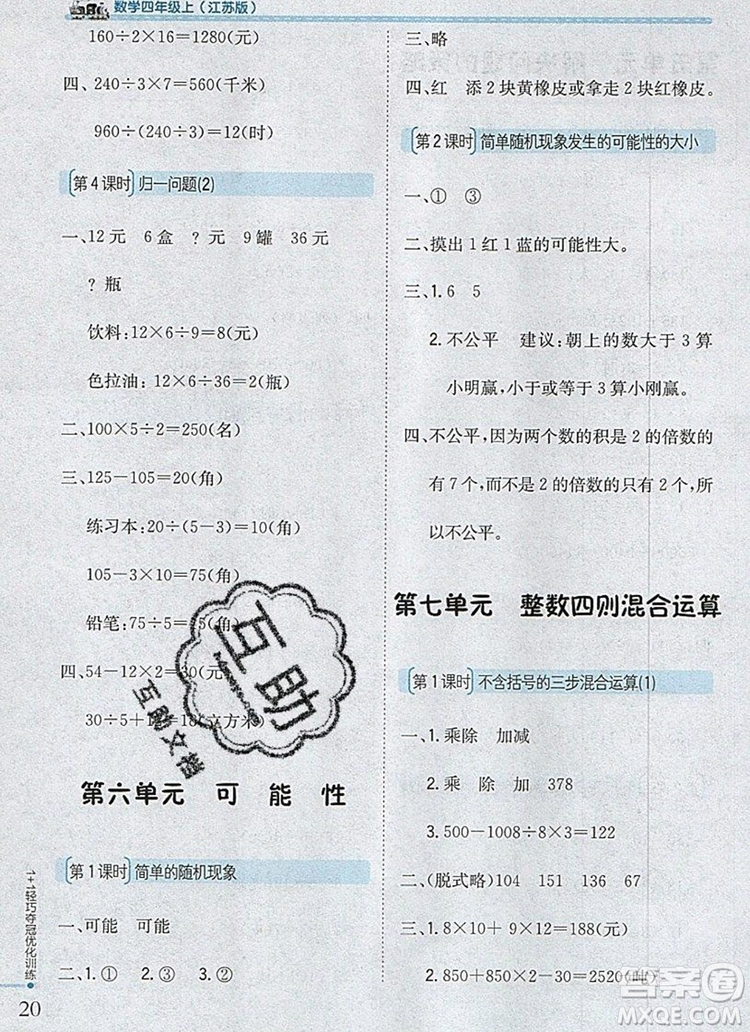 数学四年级上（江苏版）
160÷2×16=1280(元)
四、240÷3×7=560(千米)
960÷(240÷3)=12(时)
第4课时 归一问题(2)
一、12元 6盒 ？元 9罐 36元
？瓶
饮料:12×6÷9=8(元)
色拉油:12×6÷36=2(瓶)
二、100×5÷2=250(名)
三、125-105=20(角)
练习本:20÷(5-3)=10(角)
105-3×10=75(角)
铅笔:75÷5=15(角)
四、54-12×2=30(元)
30÷5×3=18(立方米)
第六单元 可能性
第1课时 简单的随机现象
一、可能 可能
二、1.① 2.① ② ③
三、略
四、红 添2块黄橡皮或拿走2块红橡皮。
第2课时 简单随机现象发生的可能性的大小
一、① ③
二、摸出1红1蓝的可能性大。
三、1.6 5
2.不公平 建议:朝上的数大于3算
小明赢,小于或等于3算小刚赢。
四、不公平,因为两个数的积是2的倍数的
有7个,而积不是2的倍数的只有2个,所
以不公平。
第七单元 整数四则混合运算
第1课时 不含括号的三步混合运算(1)
一、1.乘除 加减
2.乘 除 加 378
3.500-1008÷8×3=122
二、(脱式略)104 150 151
三、1.8×10+9×12=188(元)
2.850+850×2-30=2520(吨)
1+1轻巧夺冠优化训练
20
互助
互助文档
答案圈
MXQE.COM